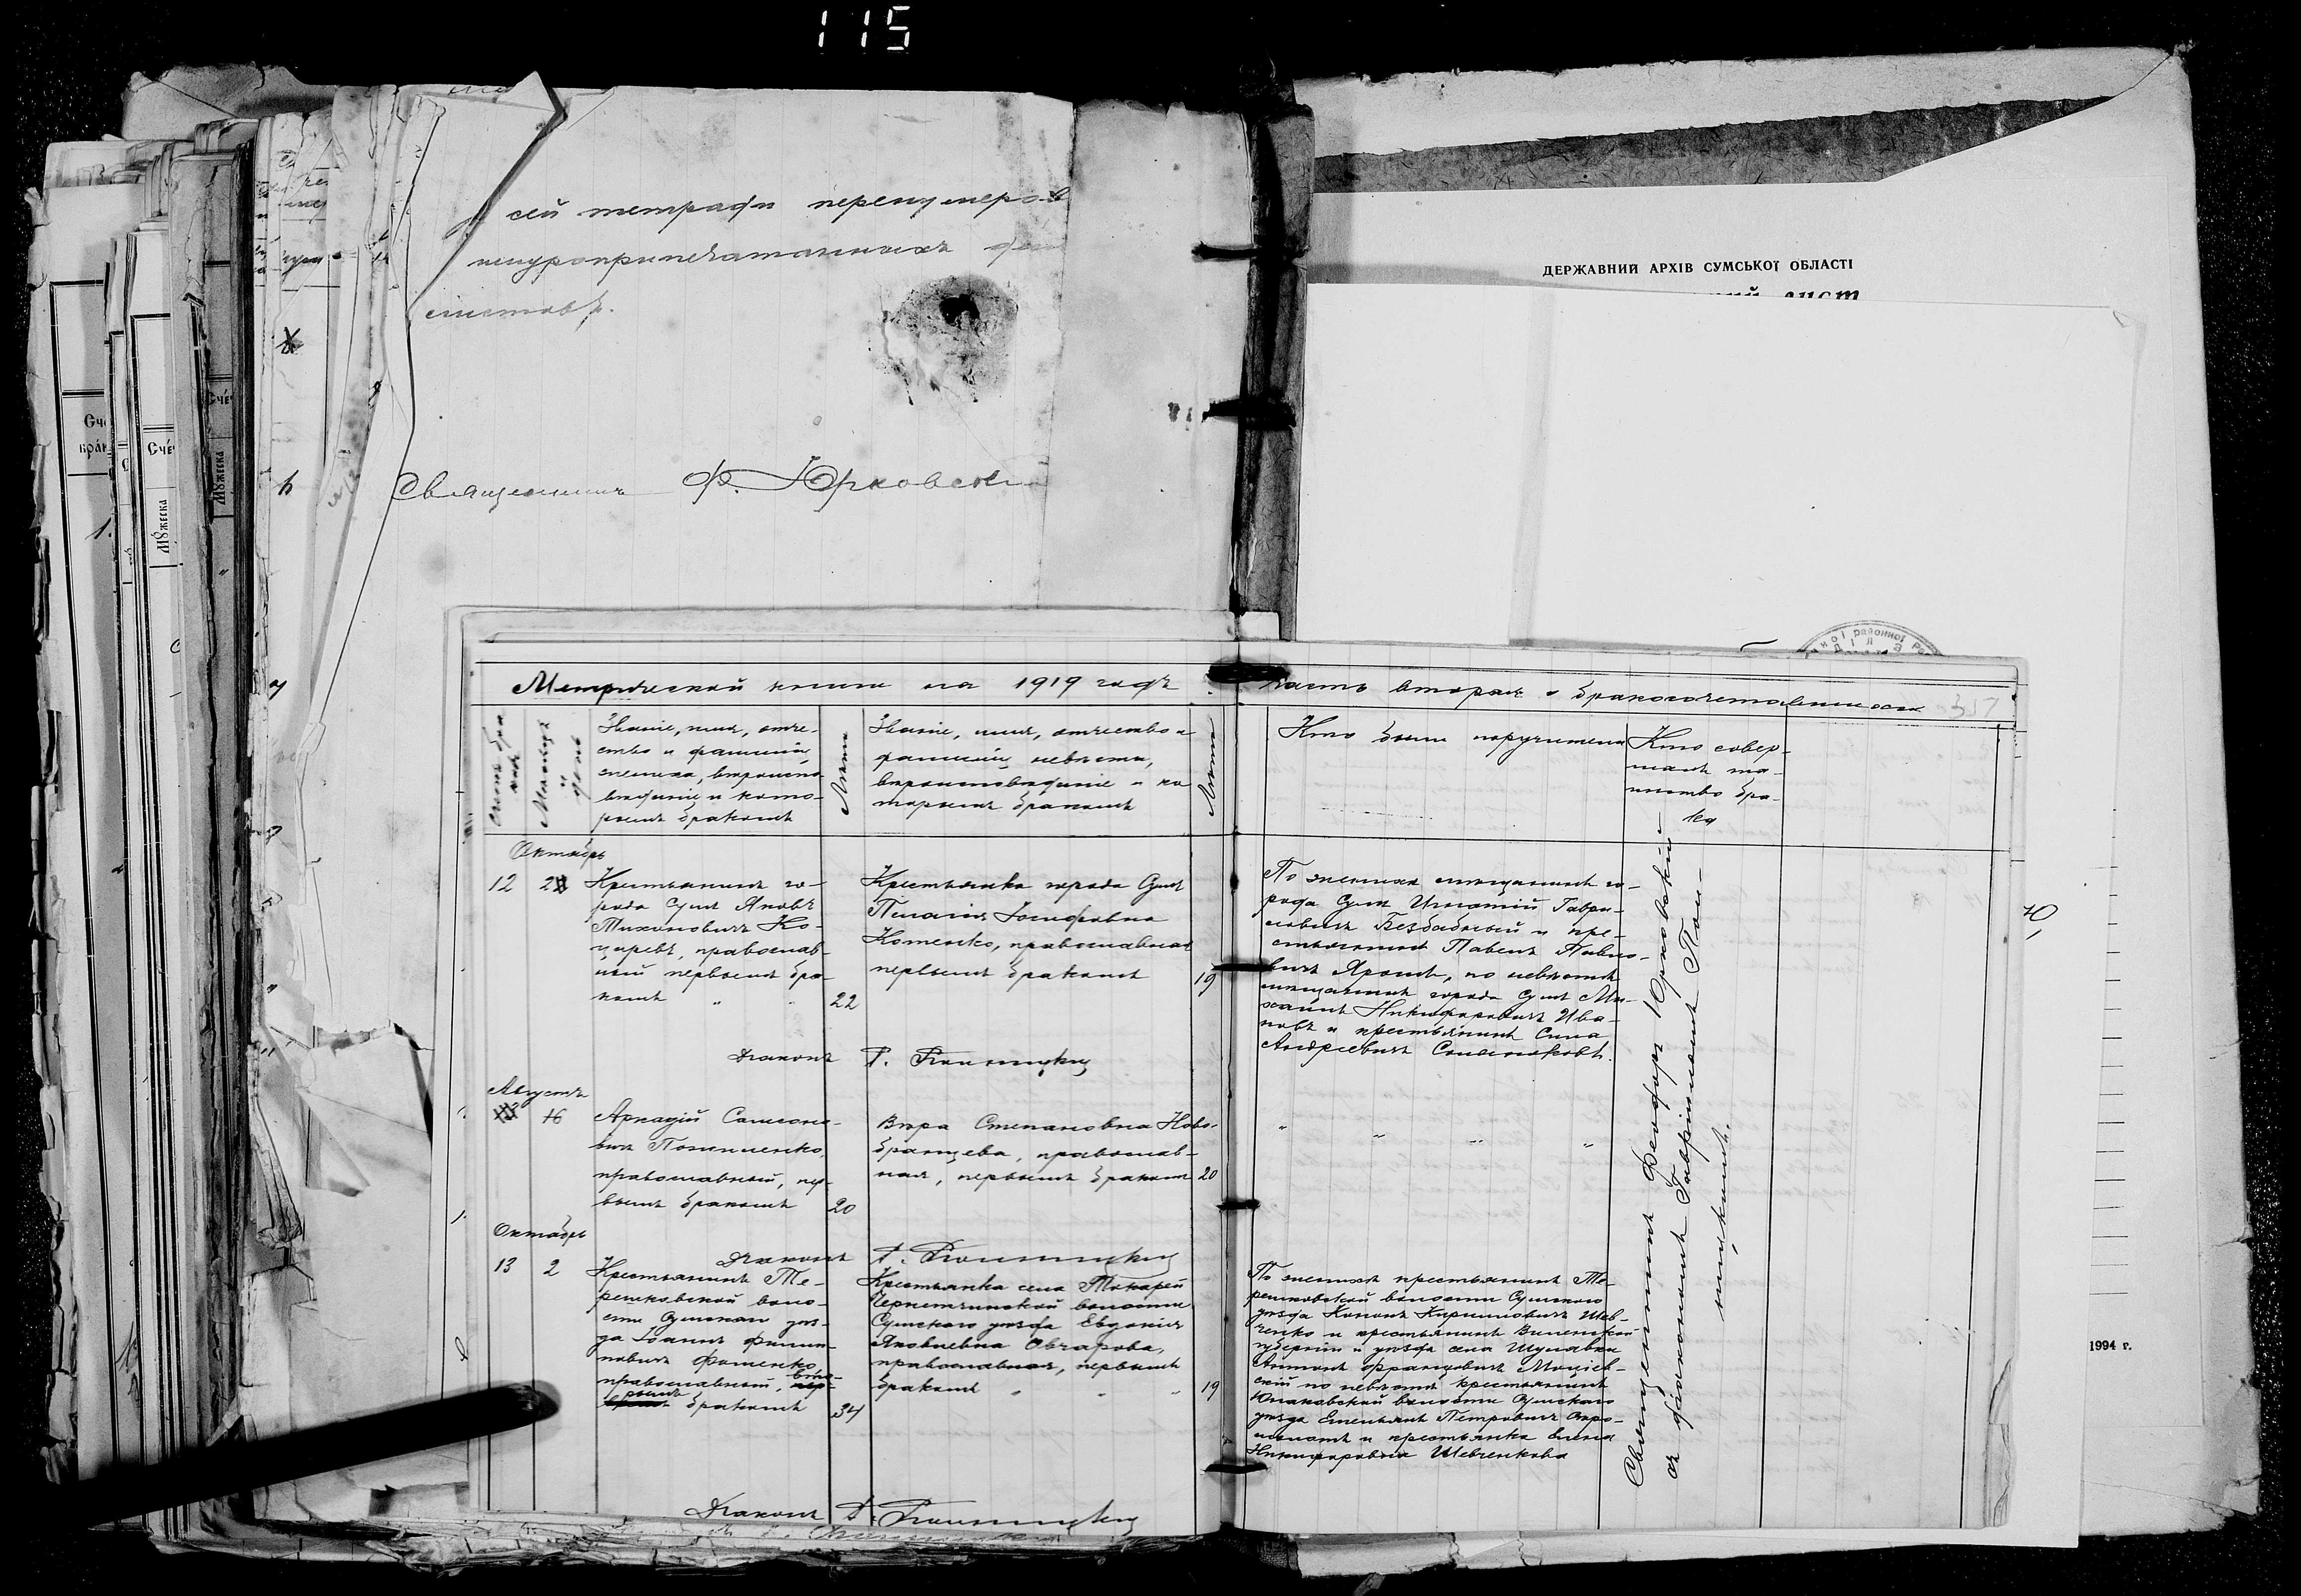 115
сей тетради перенумеров
шнуроприпечатанныхъ
листовъ.
Священникъ Ф. Юрковскій
ДЕРЖАВНИЙ АРХІВ СУМСЬКОЇ ОБЛАСТІ
районної
1994 г.
Метрической книги на 1919 годъ
часть вторая о бракосочетавшихся
Счетъ бра
ковъ
Мѣсяцъ
и
день
Званіе, имя, отче-
ство и фамилія
жениха, вѣроиспо-
вѣданіе и кото-
рымъ бракомъ
Лѣта
Званіе, имя, отчество и
фамилія невѣсты,
вѣроисповѣданіе и ко
торымъ бракомъ
Лѣта
Кто были поручители
Кто совер-
шалъ та-
инство бра-
ка
Октябрь
12
Крестьянинъ го-
рода Сумъ Яковъ
Тихоновичъ Ко-
царевъ, православ-
ный первымъ бра-
комъ 22
Крестьянка города Сумъ
Пелагія Іосифовна
Котенко, православная
первымъ бракомъ 19
По женихѣ мѣщанинъ го-
рода Сумъ Игнатій Гаври-
ловичъ Безбабный и кре-
стьянинъ Павелъ Павло-
вичъ Ярошъ, по невѣстѣ
мѣщанинъ города Сумъ Ми-
хаилъ Никифоровичъ Ива-
новъ и крестьянинъ Сила
Андреевичъ
Діаконъ Г.
Августъ
16
Аркадій Самсоно-
вичъ
православный, пер-
вымъ бракомъ 20
Вѣра Степановна Ново-
бранцева, православ-
ная, первымъ бракомъ 20
Октябрь
Діаконъ Г.
13 2
Крестьянинъ Те-
решковской воло-
сти Сумскаго уѣз-
да Іоаннъ Филип-
повичъ Фоменко,
православный, вто-
рымъ
бракомъ 34
Крестьянка села Токарей
Чернетчинской волости
Сумскаго уѣзда Евдокія
Яковлевна Овчарова,
православная, первымъ
бракомъ 19
По женихѣ крестьянинъ Те-
решковской волости Сумского
уѣзда Кононъ Кирилловичъ Шев-
ченко и крестьянинъ Виленской
губерніи и уѣзда села
Антонъ Францовичъ
скій по невѣстѣ крестьянинъ
Юнаковской волости Сумского
уѣзда Емельянъ Петровичъ
и крестьянка Елена
Никифоровна Шевченкова
Діаконъ Г.
Священникъ Феодоръ Юрковскій
съ діакономъ Гавріиломъ Пол-
ницкимъ.
70,